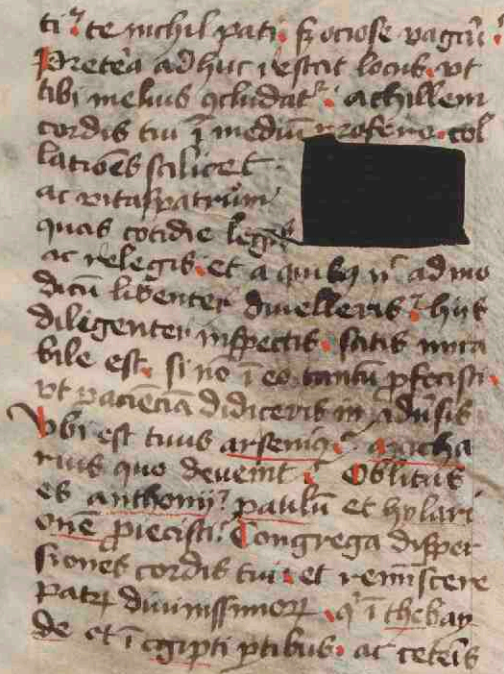 ti? te nichil pati. sꝫ ociose vagari.
Pretea adhuc restat locus. vt
tibi melius ꝯcludat᷑. achillem
cordis tui ī mediū profero. col
lationes scilicet
ac vitaspatrum
quas cotidie legis
ac relegis. et a quibꝫ nͥ ad mo
dicū libenter divelleris? hiis
diligenter inspectis. satis mira
bile est. si nō ī eo tantū ꝓfecisti.
vt paciēciā didiceris in adūsis
Vbi est tuus arseniꝰ? macha
rius quo devenit? Oblitus
es anthonij? paulū et hylari
onē proiecisti? Congrega disper
siones cordis tui. et reminiscere
Patꝝ divinissimoꝝ. qͥ ī thebay
de et ī egipti ꝑtibus. ac ceteris